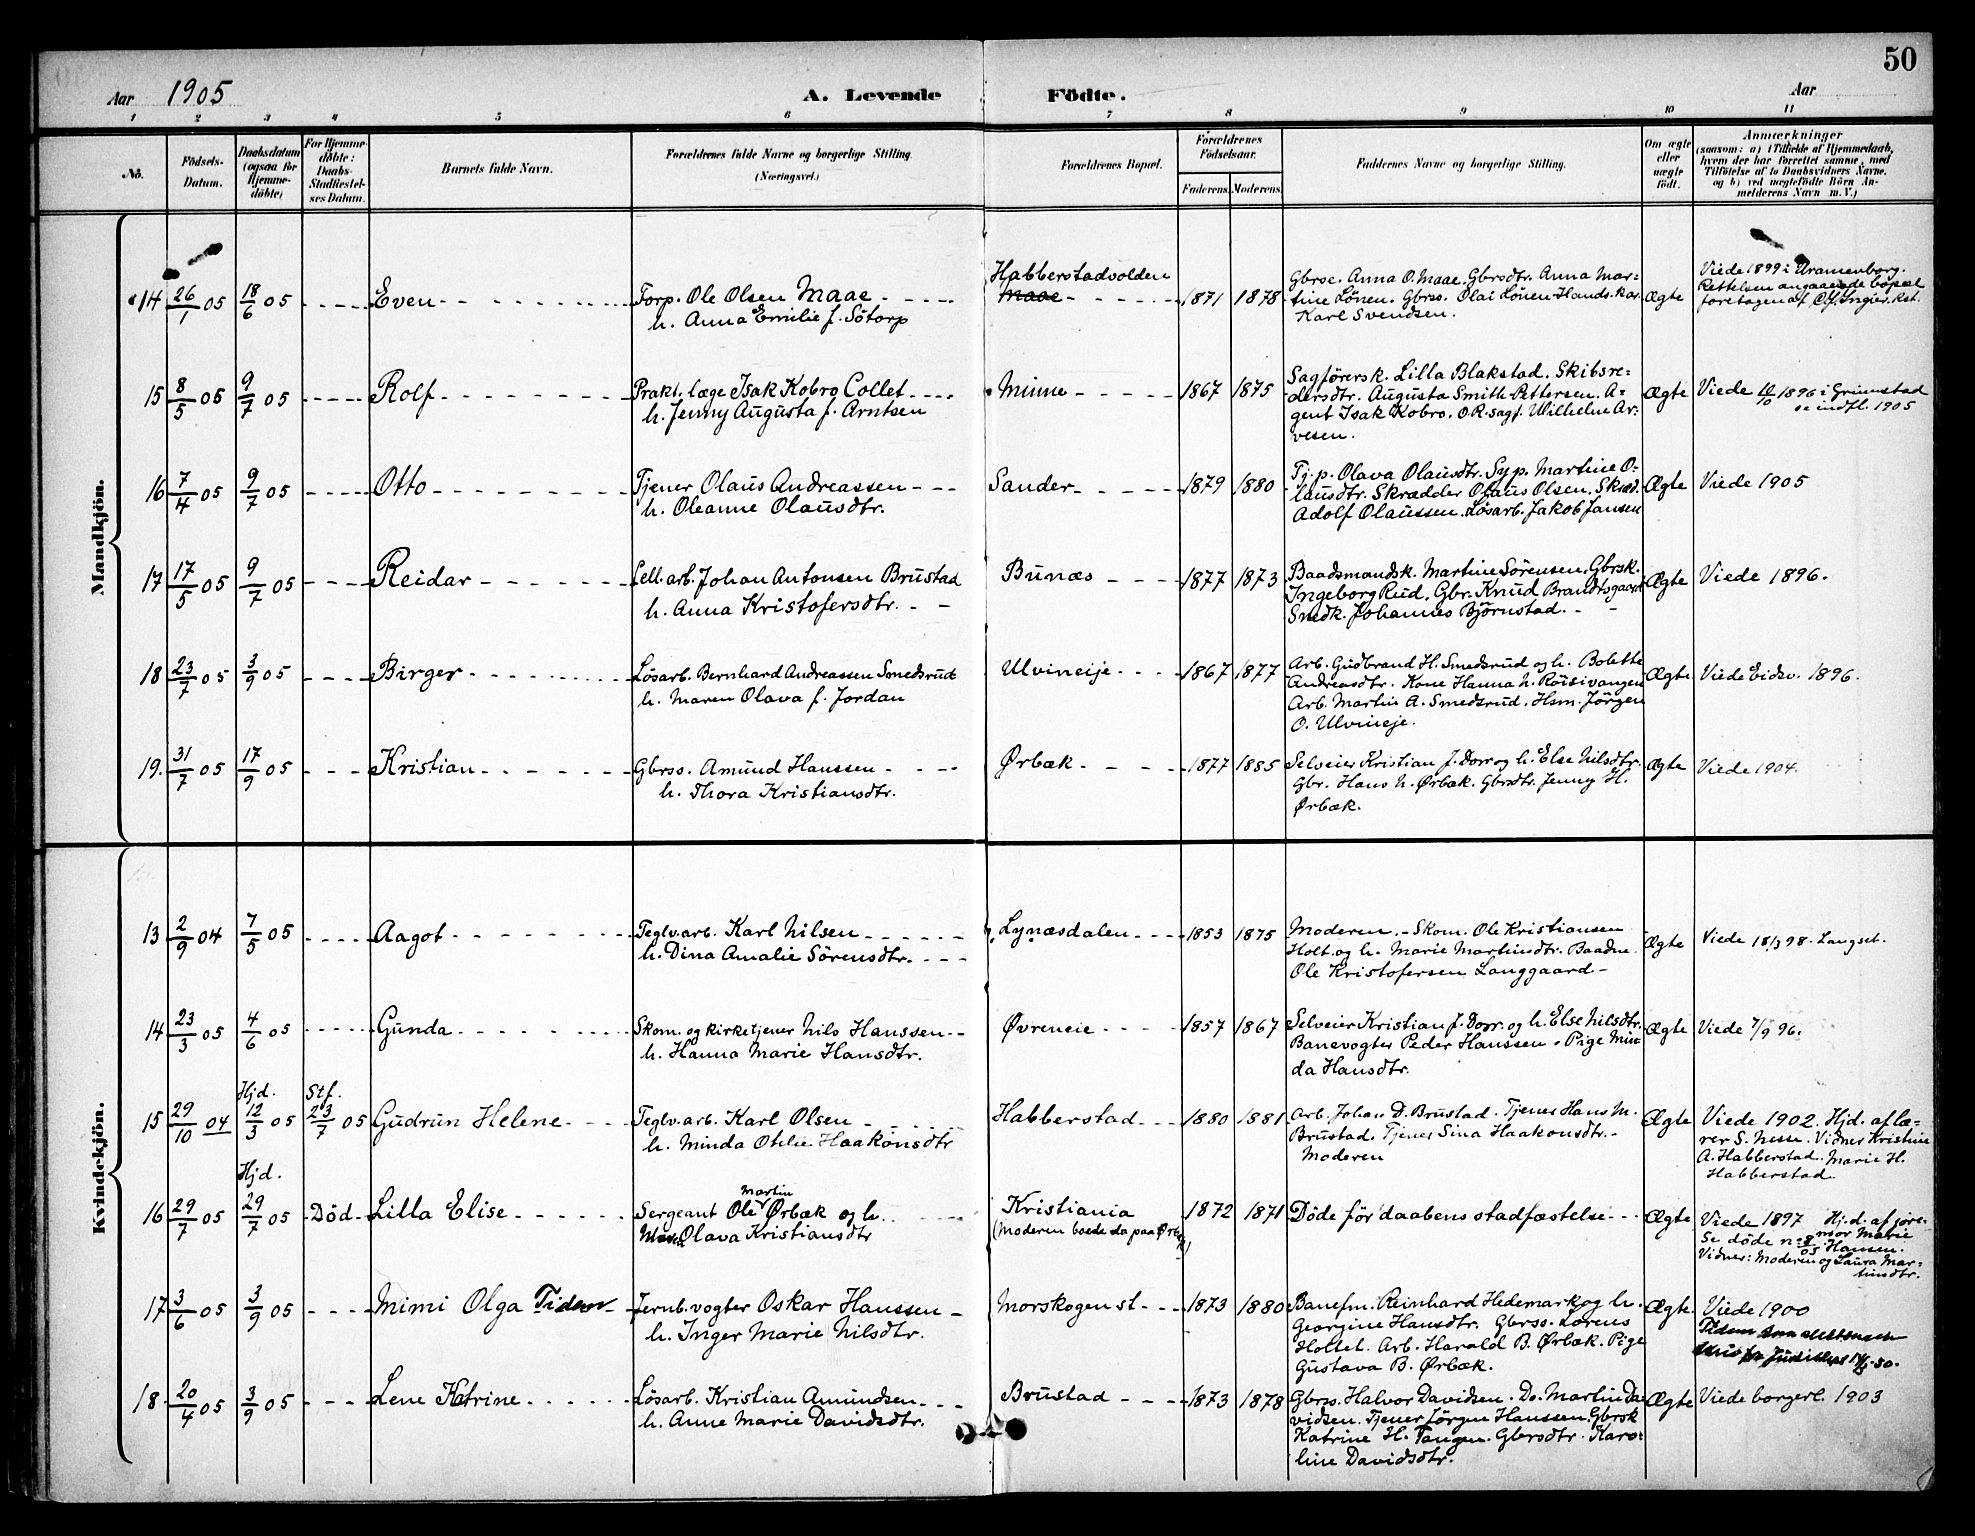 50
Aar 1905
A. Levende Födte.
Aar
1 2 3 4 5 6 7 8 9 10 11
No.
Födsels-
Datum.
Daabsdatum
(ogsaa for
Hjemme-
döbte)
For Hjemme-
döbte:
Daabs-
Stadfæstel-
ses Datum.
Barnets fulde Navn.
Forældrenes fulde Navne og borgerlige Stilling.
(Næringsvei.)
Forældrenes Bopæl.
Forældrenes
Födselsaar.
Faderens. Moderens.
Faddernes Navne og borgerlige Stilling.
Om ægte
eller
uægte
födt.
Anmærkninger
(saasom: a) i Tilfælde af Hjemmedaab,
hvem der har forrettet samme, med
Tilföielse af to Daabsvidners Navne,
og b) ved uægtefödte Börn An-
melderens Navn m. V.)
Mandkjön.
14 26/1 05 18/6 05 Even
Torp. Ole Olsen Maae
h. Anna Emilie f. Sötorp
Habberstadvolden
Maae
1871 1878
Gbrse. Anna O. Maae. Gbrsdtr. Anna Mar-
tine Lönen. Gbrss. Olai Lönen Hands. kar
Karl Svendsen.
Ægte
Viede 1899 i Uranienborg.
Rettelsen angaaende bopæl
foretagen af
15 8/5 05 9/7 05 Rolf
Prakt. læge Isak Kobro Collet
h. Jenny Augusta f. Arntsen
Minne
1867 1875
Sagförersk. Lilla Blakstad. Skibsre-
dersdtr. Augusta Smith Pettersen. A-
gent Isak Kobro. O.R.sagf. Wilhelm Ar-
vesen.
Ægte
Viede 10/10 1896 i Grimstad
se indfl. 1905
16 7/4 05 9/7 05 Otto
Tjener Olaus Andreassen
h. Oleanne Olausdtr.
Sander
1879 1880
Tj. p. Olava Olausdtr. Syp. Martine O-
lausdtr. Skrædder Olaus Olsen. Skræd.
Adolf Olaussen. Lösarb. Jakob Jansen
Ægte
Viede 1905
17 17/5 05 9/7 05 Reidar
Cell. arb. Johan Antonsen Brustad
h. Anna Kristofersdtr.
Bunæs
1877 1873
Baadsmandsk. Martine Sörensen. Gbrsk.
Ingeborg Rud. Gbr. Knud Brandtsgaard
Snedk. Johannes Björnstad.
Ægte
Viede 1896.
18 23/7 05 3/9 05 Birger
Lösarb. Bernhard Andreassen Smedsrud
h. Maren Olava f. Jordan
Ulvineije
1867 1877
Arb. Gudbrand H. Smedsrud og h. Bolette
Andreasdtr. Kone Hanna N. Röisivangen
Arb. Martin A. Smedsrud. Hsm. Jörgen
O. Ulvineje.
Ægte
Viede Eidsv. 1896.
19. 31/7 05 17/9 05 Kristian
Gbrss. Amund Hanssen
h. Thora Kristiansdtr.
Ørbæk
1877 1885
Selveier Kristian J. Dorr og h. Else Nilsdtr.
Gbr. Hans N. Ørbæk. Gbrdtr. Jenny H.
Ørbæk.
Ægte
Viede 1904.
Kvindekjön.
13 2/9 04 7/5 05 Aagot
Teglv. arb. Karl Nilsen
h. Dina Amalie Sörensdtr.
Lynæsdalen
1853 1875
Moderen. - Skom. Ole Kristiansen
Holt. og h. Marie Martinsdtr. Baadm.
Ole Kristofersen Langgaard -
Ægte
Viede 18/3 98. Langset.
14 23/3 05 4/6 05 Gunda
Skom. og kirketjener Nils Hanssen
h. Hanna Marie Hansdtr.
Øvreneie
1857 1867
Selveier Kristian J. Dorr. og h. Else Nilsdtr.
Banevogter Peder Hanssen. Pige Min-
da Hansdtr.
Ægte
Viede 7/9 96.
Hjd. Stf.
15 29/10 04 12/3 05 23/7 05 Gudrun Helene
Teglv. arb. Karl Olsen
h. Minda Otilie Haakonsdtr
Habberstad
1880 1881
Arb. Johan D. Brustad. Tjener Hans M.
Brustad. Tjener Sina Haakonsdtr.
Moderen
Ægte
Viede 1902. Hjd. af læ-
rer S. Nesse. Vidner Kristine
A. Habberstad. Marie H.
Habberstad.
Hjd.
16 29/7 05 29/7 05 Död Lilla Elise
Sergeant Ole Martin Ørbæk og h.
Olava Kristiansdtr
Kristiania
(Moderen boede da paa Ørbæk)
1872 1871
Döde för daabens stadfæstelse
Ægte
Viede 1897 Hj.d. af jore-
mor Marie
Se döde n. 8/05 Hansen.
Vidner: Moderen og Laura Mar-
tinsdtr.
17 3/6 05 3/9 05 Mimi Olga Tidem
Jernb. vogter Oskar Hanssen
h. Inger Marie Nilsdtr.
Morskogen st.
1873 1880
Banefm. Reinhard Hedemark og h.
Georgine Hansdtr. Gbrss. Lorens
Holtet. Arb. Harald B. Ørbæk. Pige
Gustava B. Ørbæk.
Ægte.
Viede 1900
Tidem som slektsnavn
18 20/4 05 3/9 05 Lene Katrine
Lösarb. Kristian Amundsen
h. Anne Marie Davidsdtr.
Brustad
1873 1878
Gbrss. Halvor Davidsen. Do. Martin Da-
vidsen. Tjener Jörgen Hanssen. Gbrsk
Katrine H. Tangen. Gbrsdtr. Karo-
line Davidsdtr.
Ægte
Viede borgerl. 1903